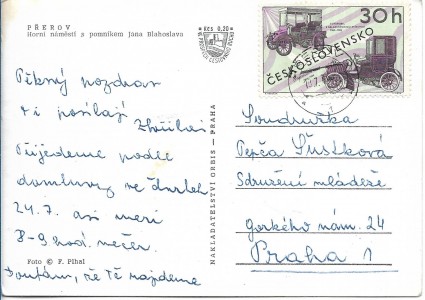 PŘEROV
Horní náměstí s pomníkem Jana Blahoslava
Kčs 0,20
30h
ČESKOSLOVENSKO
Pěkný pozdrav
ti posílají
Přijedeme podle
domluvy ve čtvrtek
24.7. asi mezi
8-9 hod. večer.
Doufám, že Tě najdeme
Foto © F. Plhal
NAKLADATELSTVÍ ORBIS - PRAHA
Soudružka
Pepča Šustková
Sdružení mládeže
Gorkého nám. 24
Praha 1